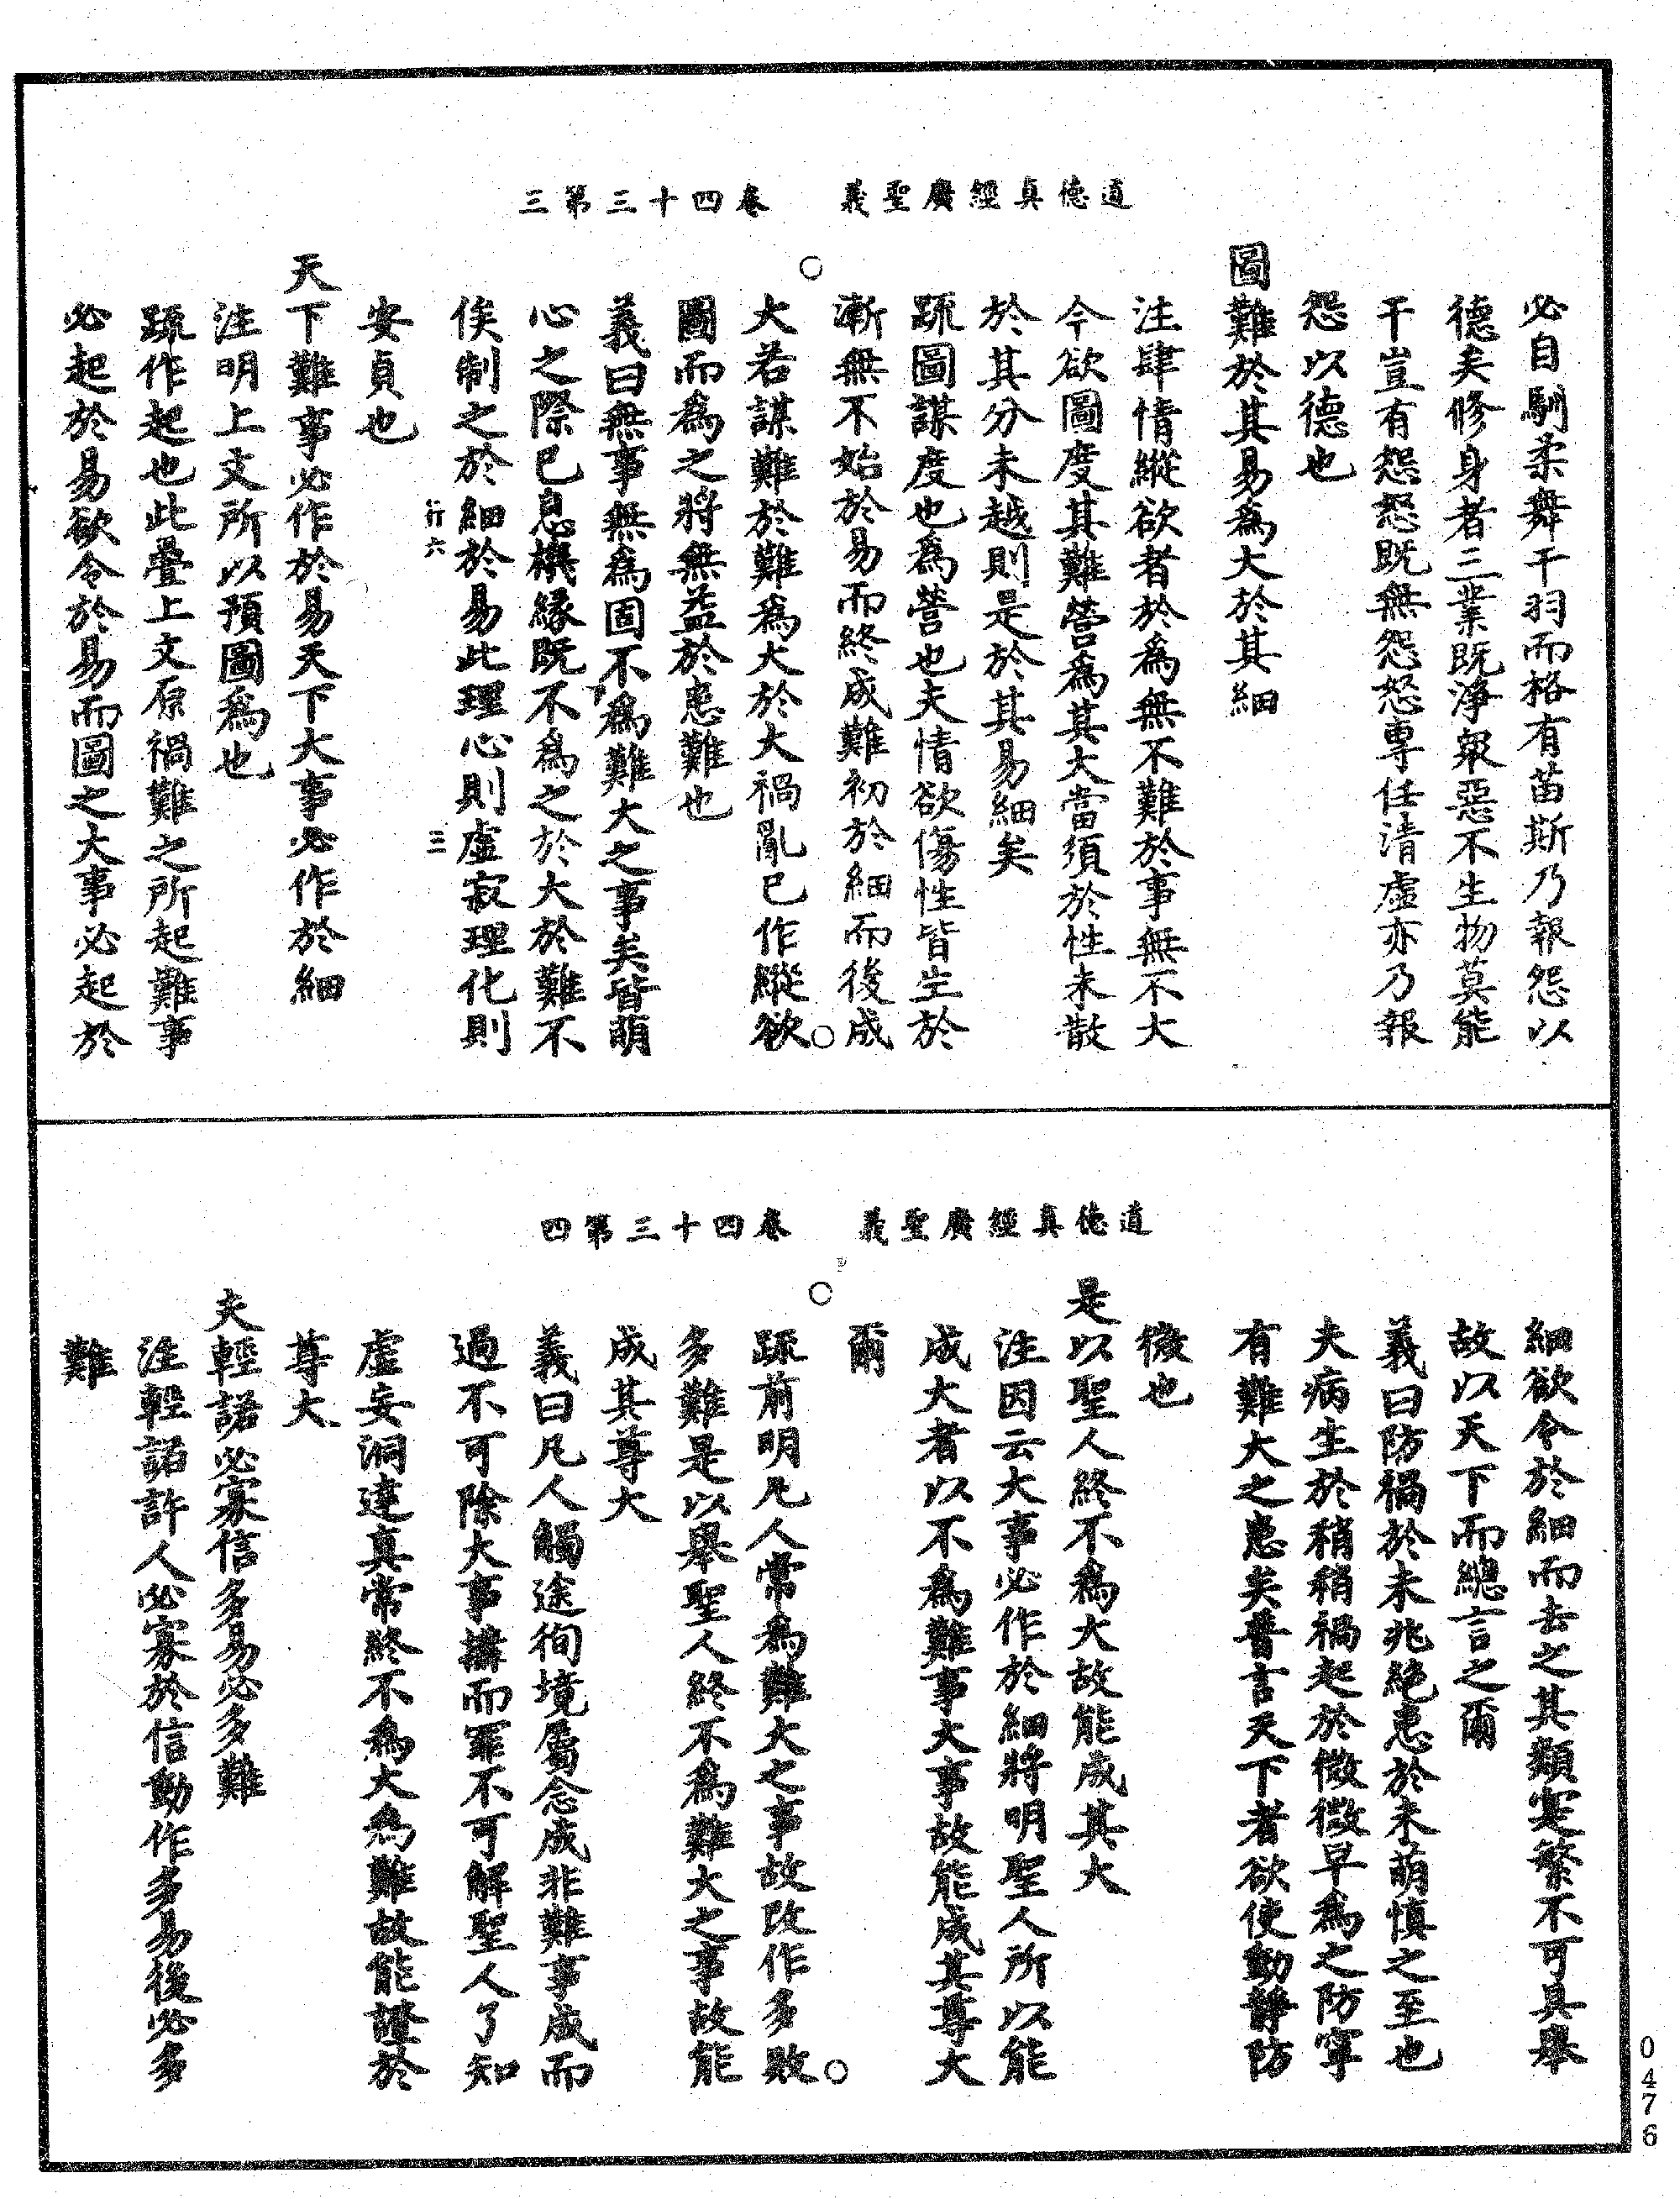 道德真經廣聖義　卷四十三第三
必自馴柔舞干羽而格有苗斯乃報怨以
德矣修身者三業既淨衆惡不生物莫能
干豈有怨怒既無怨怒専任清虛亦乃報
怨以德也
圖難於其易為大於其細
注肆情縱欲者於為無不難於事無不大
今欲圖度其難營為其大當須於性未散
於其分未越則是於其易細矣
疏圖謀度也為營也夫情欲傷性皆生於
漸無不始於易而終成難初於細而後成
大若謀難於難為大於大禍亂已作縱欲
圖而為之將無益於患難也
義曰無事無為固不為難大之事矣皆萌
心之際已息機緣既不為之於大於難不
俟制之於細於易此理心則虛寂理化則
行六　三
安貞也
天下難事必作於易天下大事必作於細
注明上文所以預圖為也
疏作起也此疊上文原禍難之所起難事
必起於易欲令於易而圖之大事必起於
道德真經廣聖義　卷四十三第四
細欲令於細而去之其類寔繁不可具舉
故以天下而總言之爾
義曰防禍於未兆絕患於未萌慎之至也
夫病生於稍稍禍起於微微早為之防寧
有難大之患矣普言天下者欲使動靜防
微也
是以聖人終不為大故能成其大
注因云大事必作於細將明聖人所以能
成大者以不為難事大事故能成其尊大
爾
疏前明凡人常為難大之事故改作多敗
多難是以舉聖人終不為難大之事故能
成其尊大
義曰凡人觸途徇境屬念成非難事成而
過不可除大事搆而罪不可解聖人了知
虛妄洞達真常終不為大為難故能證於
尊大
夫輕諾必寡信多易必多難
注輕諾許人必寡於信動作多易後必多
難
0476